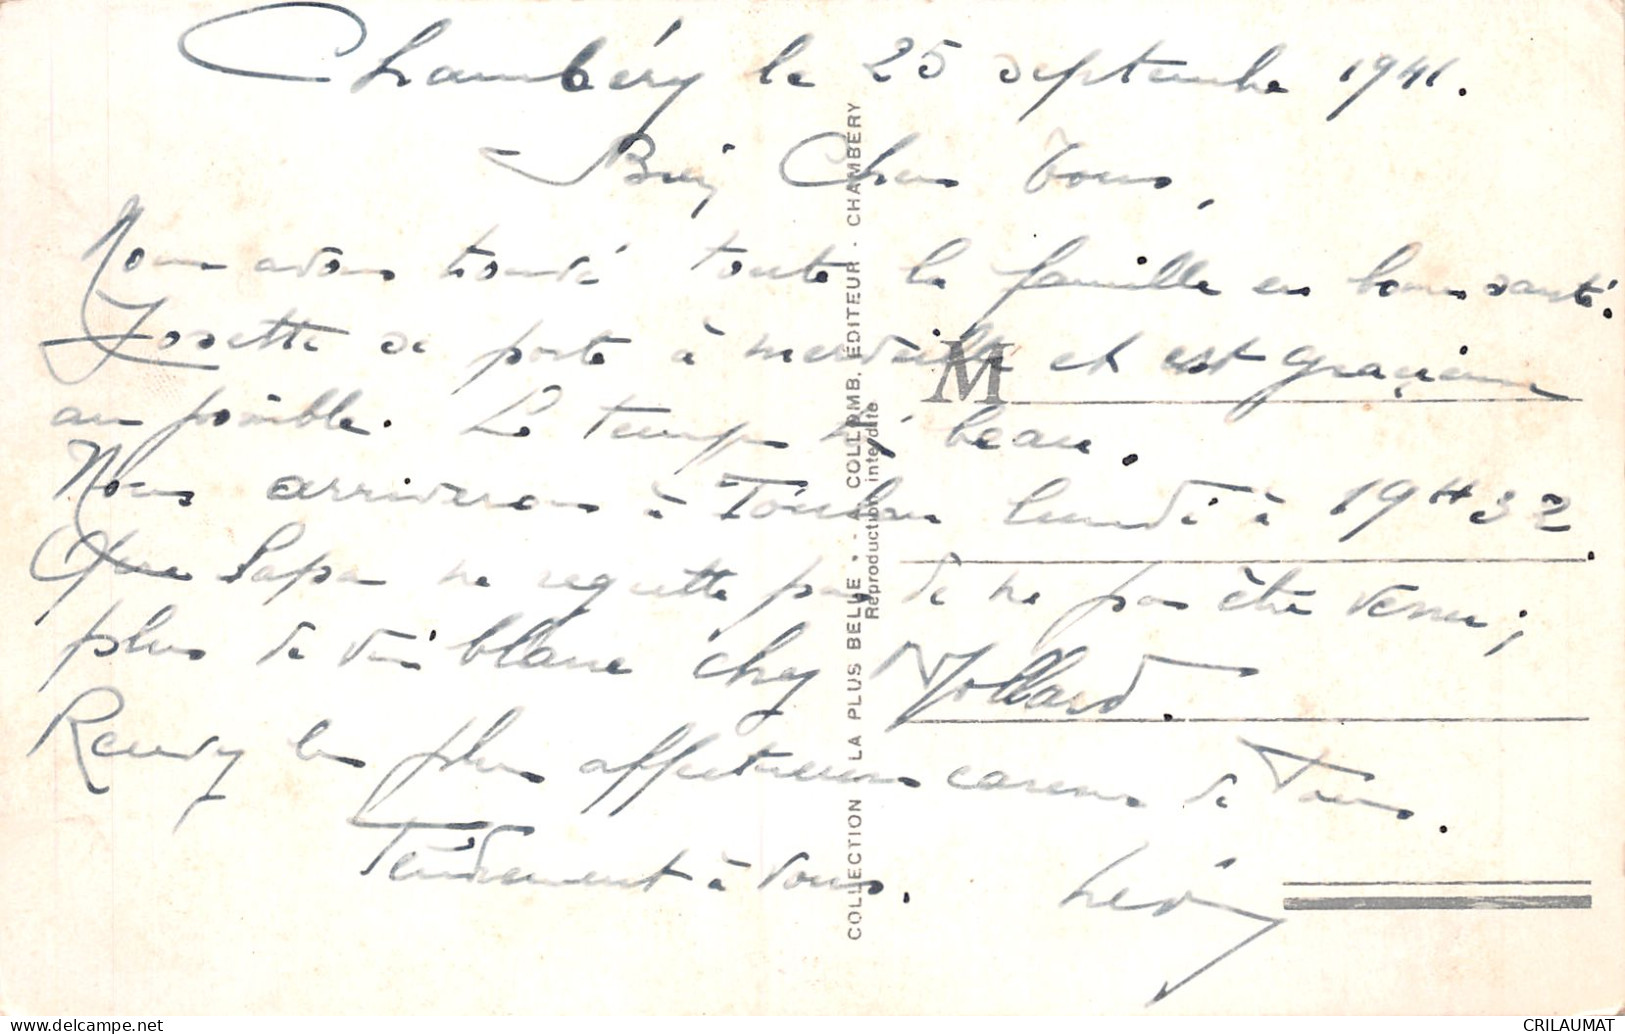 Chambéry le 25 septembre 1941.
Bien Chers Tous,
Nous avons trouvé toute la famille en bonne santé.
Josette se porte à merveille et est gracieuse
au possible. Le temps est beau.
Nous arriverons à Toulon lundi à 19H32.
Que Papa ne regrette pas de ne pas être venu ;
plus de vin blanc chez Mollard.
Recevez les plus affectueuses caresses de Tous.
Tendrement à vous.
COLLECTION "LA PLUS BELLE" - A. COLLOMB, ÉDITEUR - CHAMBÉRY
Reproduction interdite
M
CRILAUMAT